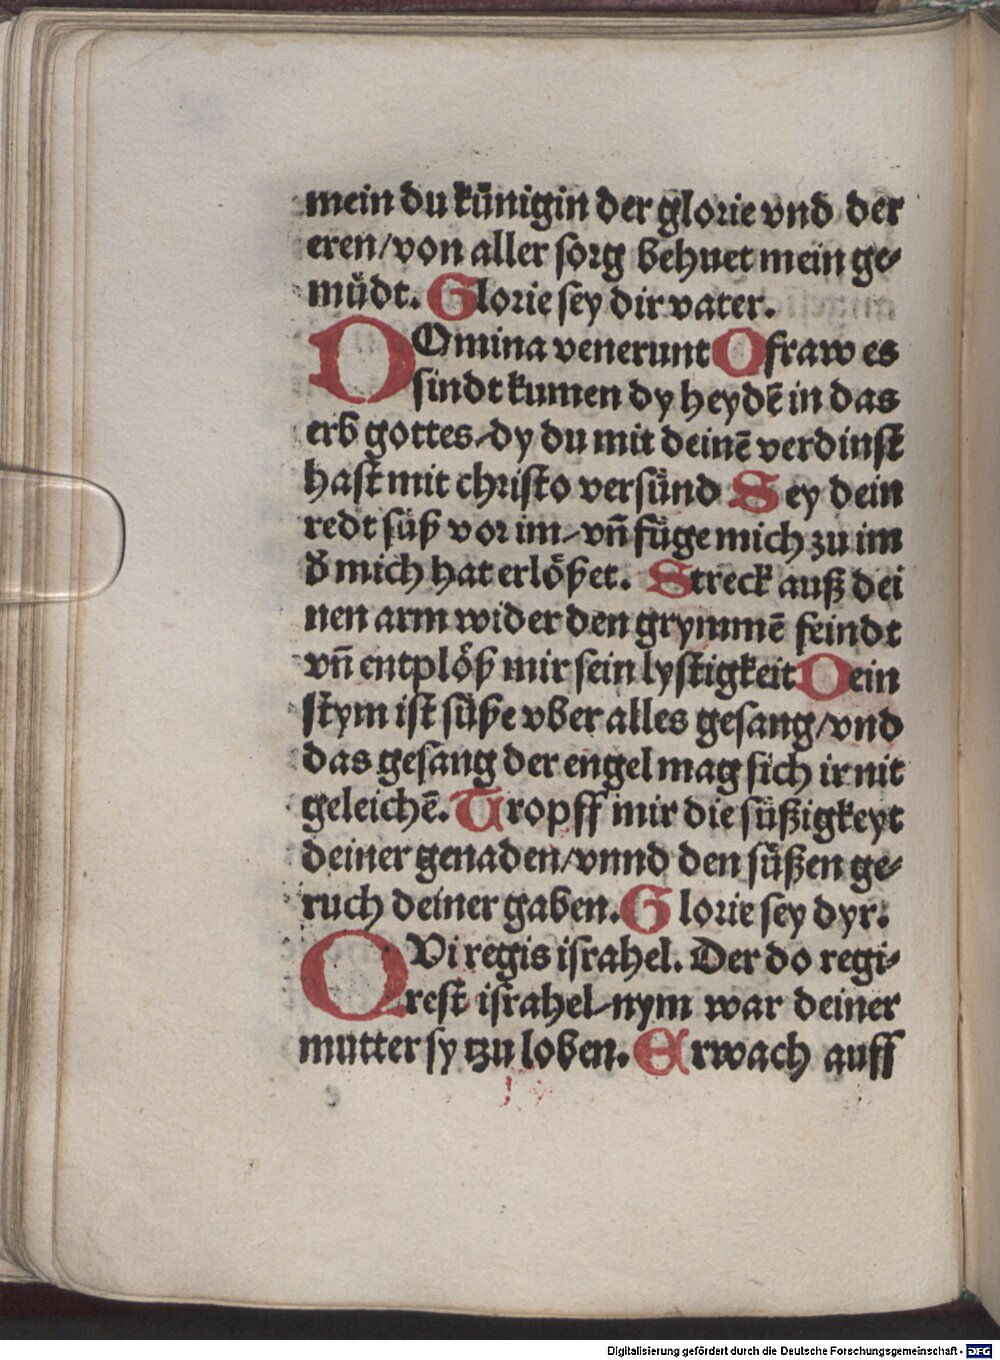 mein du künigin der glorie vnd der
eren/von aller sorg behuet mein ge-
müdt. Glorie sey dir vater.
DOmina venerunt O fraw es
sindt kumen dy heydē in das
erb gottes/dy du mit deinē verdinst
hast mit christo versünd Sey dein
redt süß vor im/vn̄ füge mich zu im
d̕ mich hat erlößet. Streck auß dei
nen arm wider den grymmē feindt
vn̄ entplöß mir sein lystigkeit Dein
stym ist süße vber alles gesang/vnd
das gesang der engel mag sich ir nit
geleichē. Tropff mir die süßigkeyt
deiner genaden/vnnd den süßen ge-
ruch deiner gaben. Glorie sey dyr.
QVi regis israhel. Der do regi-
rest israhel/nym war deiner
mutter sy tzu loben. Erwach auff
Digitalisierung gefördert durch die Deutsche Forschungsgemeinschaft - DFG